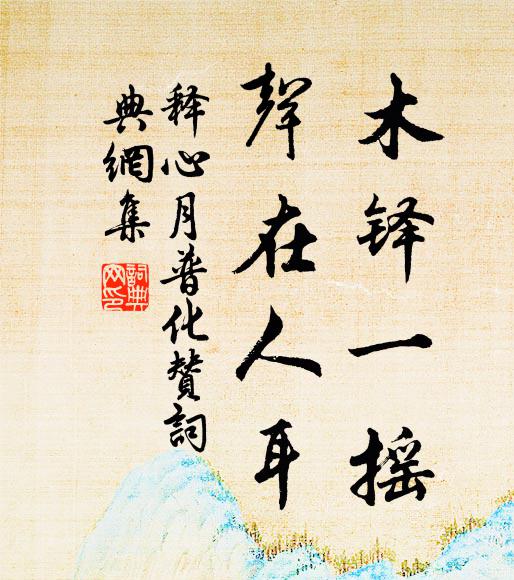 木铎一摇
聲在人耳
释心月普化赞詞
典網集
詞典网印